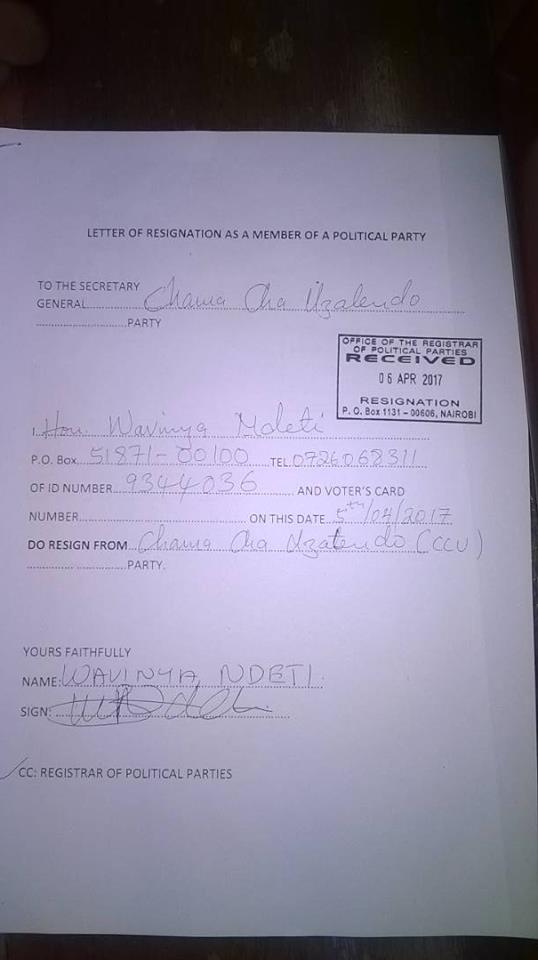 LETTER OF RESIGNATION AS A MEMBER OF A POLITICAL PARTY
TO THE SECRETARY
GENERAL Chama Cha Uzalendo
PARTY
OFFICE OF THE REGISTRAR
OF POLITICAL PARTIES
RECEIVED
06 APR 2017
RESIGNATION
P. O. Box 1131 – 00606, NAIROBI
I, Hon. Wavinya Ndeti
P.O. Box 51871-00100 TEL 0726068311
OF ID NUMBER 9344036 AND VOTER'S CARD
NUMBER ON THIS DATE 5th/04/2017
DO RESIGN FROM Chama Cha Uzalendo (CCU)
PARTY.
YOURS FAITHFULLY
NAME: WAVINYA NDETI.
SIGN:
CC: REGISTRAR OF POLITICAL PARTIES